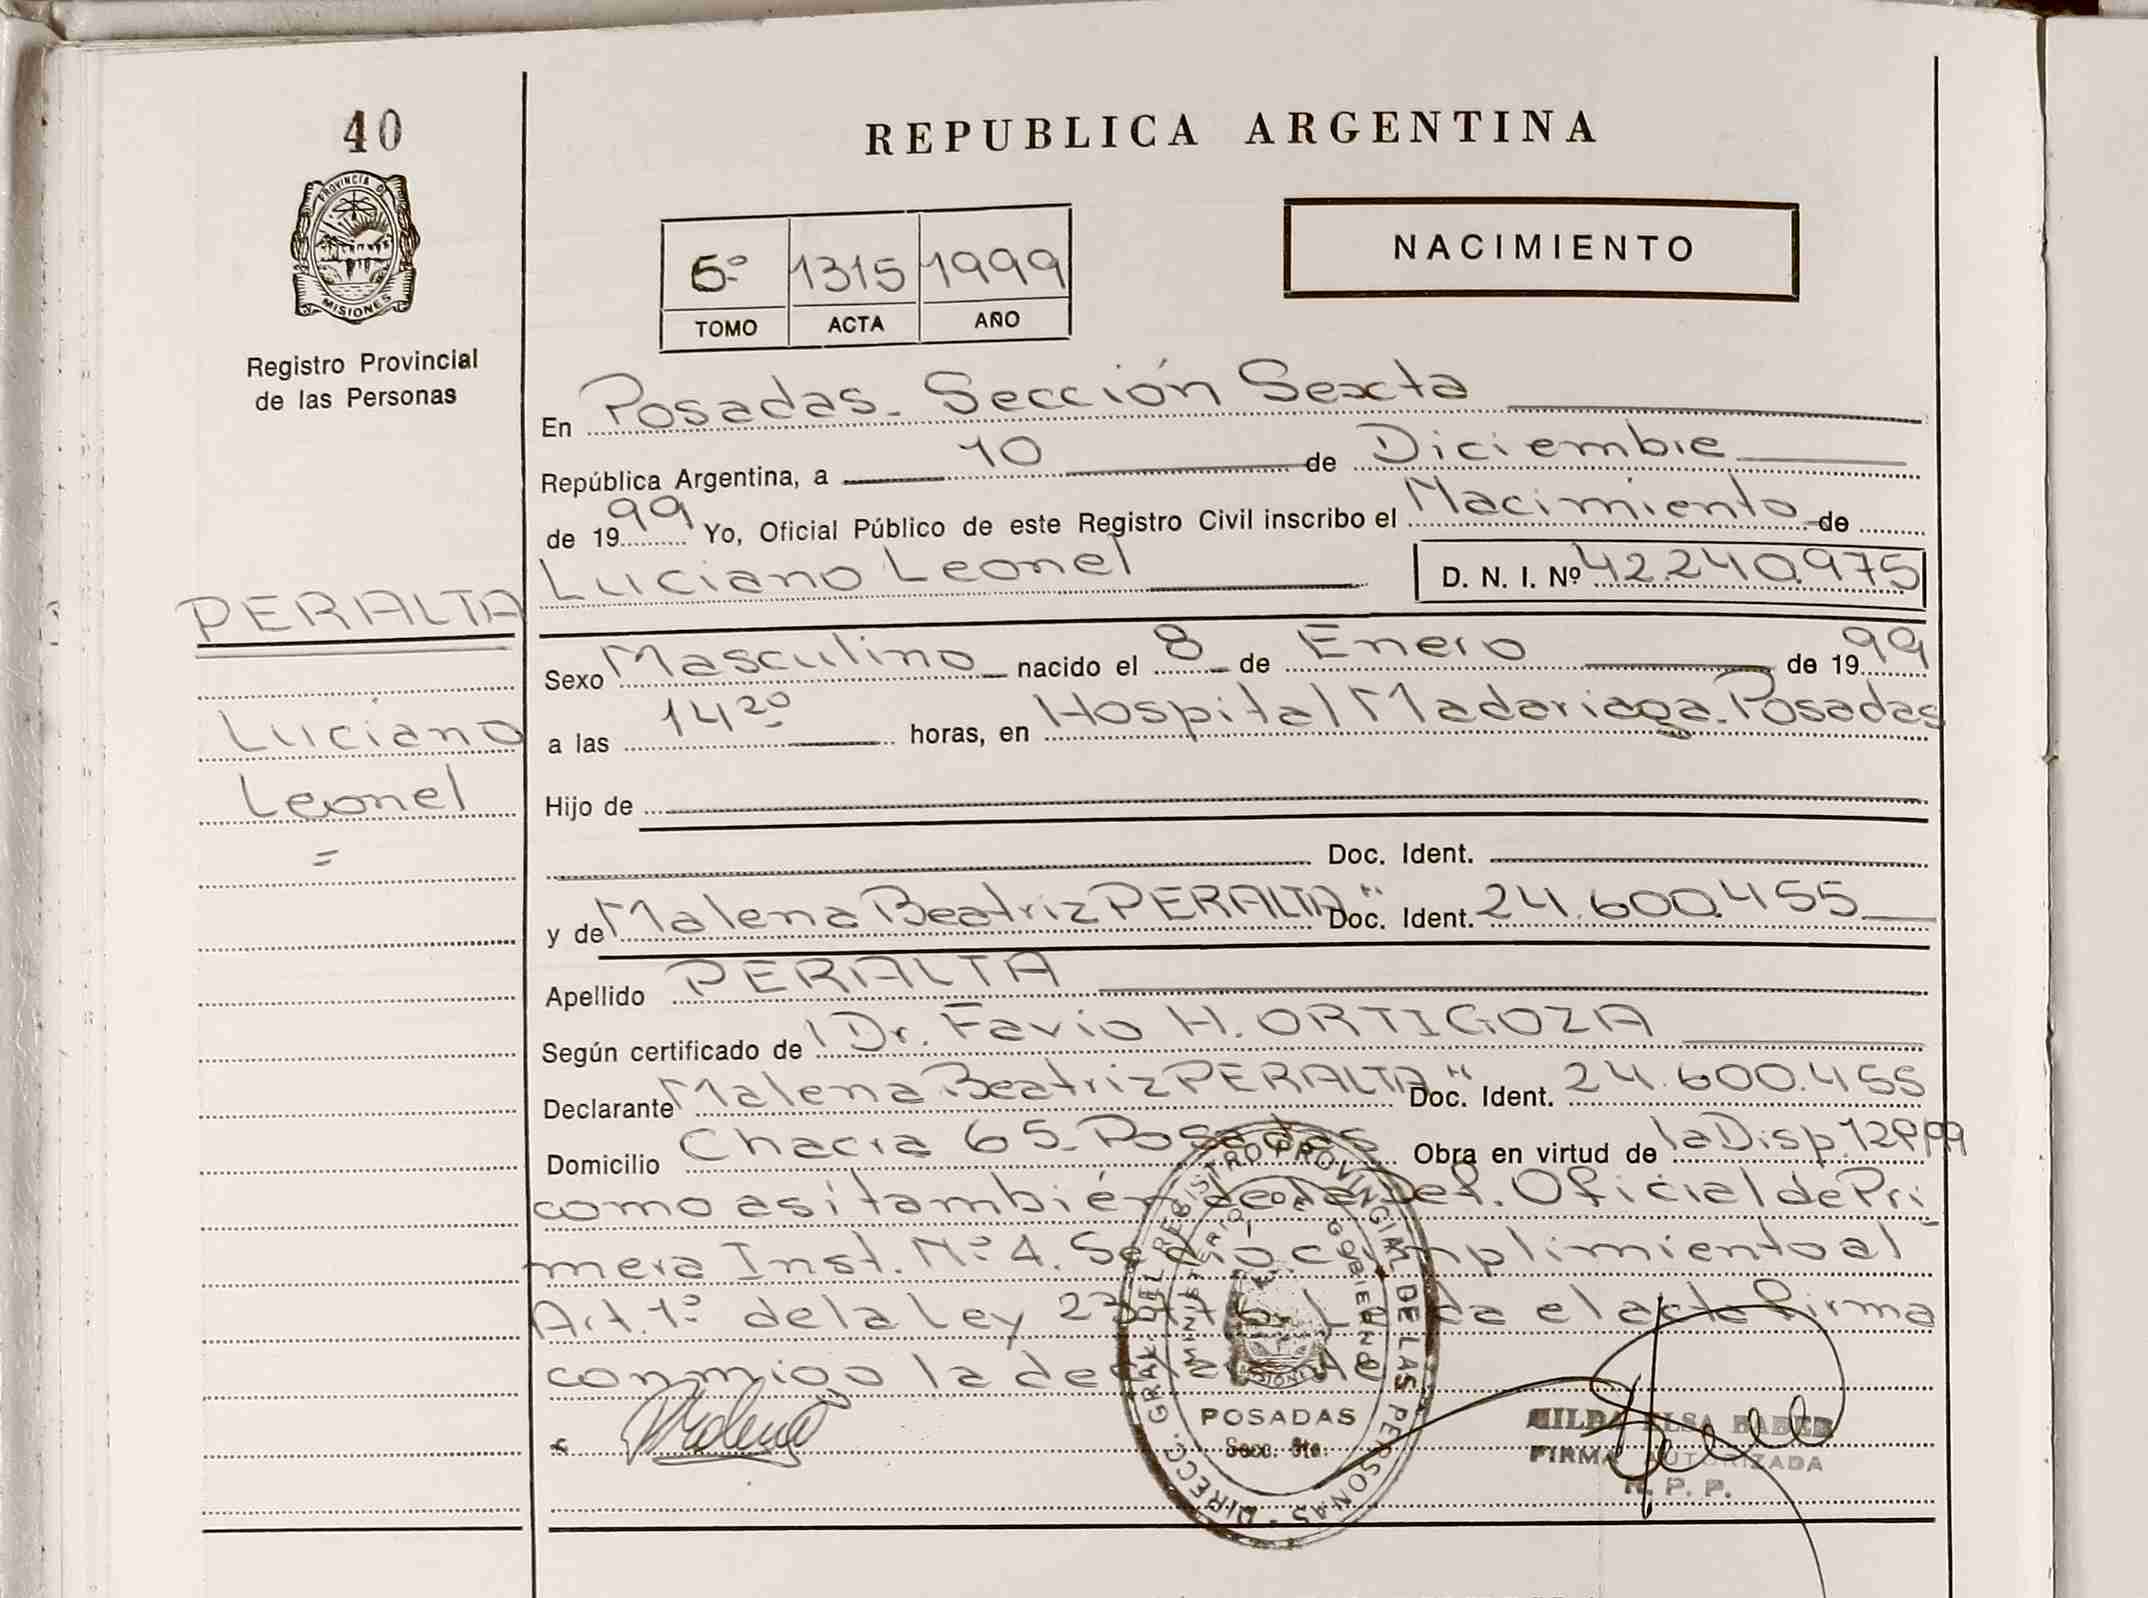 40
PROVINCIA DE
MISIONES
Registro Provincial
de las Personas
REPUBLICA ARGENTINA
NACIMIENTO
6º 1315 1999
TOMO ACTA AÑO
En Posadas. Sección Sexta
República Argentina, a 10 de Diciembre
de 1999 Yo, Oficial Público de este Registro Civil inscribo el Nacimiento de
Luciano Leonel D. N. I. Nº 42.240.975
PERALTA
Luciano
Leonel
=
Sexo Masculino nacido el 8 de Enero de 1999
a las 14 20 horas, en Hospital Madariaga. Posadas
Hijo de
Doc. Ident.
y de Malena Beatriz PERALTA " Doc. Ident. 24.600.455
Apellido PERALTA
Según certificado de Dr. Favio H. ORTIGOZA
Declarante Malena Beatriz PERALTA " Doc. Ident. 24.600.455
Domicilio Chacra 65. Posadas Obra en virtud de la Disp.
como asi también de la Def. Oficial de Pri
mera Inst. Nº 4. Se dió cumplimiento al
Art. 1º de la Ley el acta firma
conmigo la declarante
Malena
DIRECC. GRAL. DEL REGISTRO PROVINCIAL DE LAS PERSONAS
MINISTERIO DE GOBIERNO
MISIONES
POSADAS
Secc. 6ta.
HILDA ELSA
FIRMA AUTORIZADA
R. P. P.